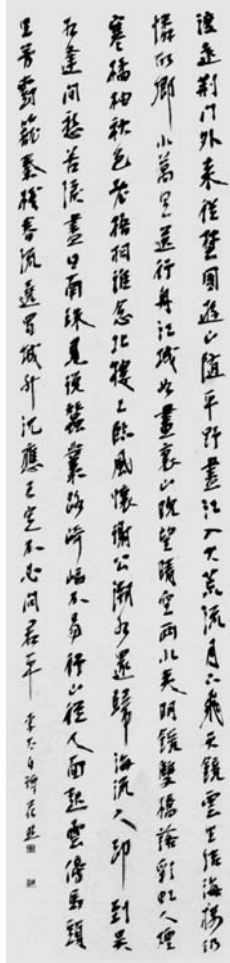 渡遠荆门外来從楚國遊山隨平野盡江入大荒流月下飛天鏡雲生結海樓仍
憐故鄉水萬里送行舟江城如畫裏山晚望晴空兩水夾明鏡雙橋落彩虹人煙
寒橘柚秋色老梧桐誰念北樓上臨風懷謝公潮水還歸海流人却到吴
相逢问愁苦淚盡日南珠見說蠶叢路崎嶇不易行山從人面起雲傍馬頭
生芳樹籠秦棧春流遶蜀城升沉應已定不必问君平 李太白詩